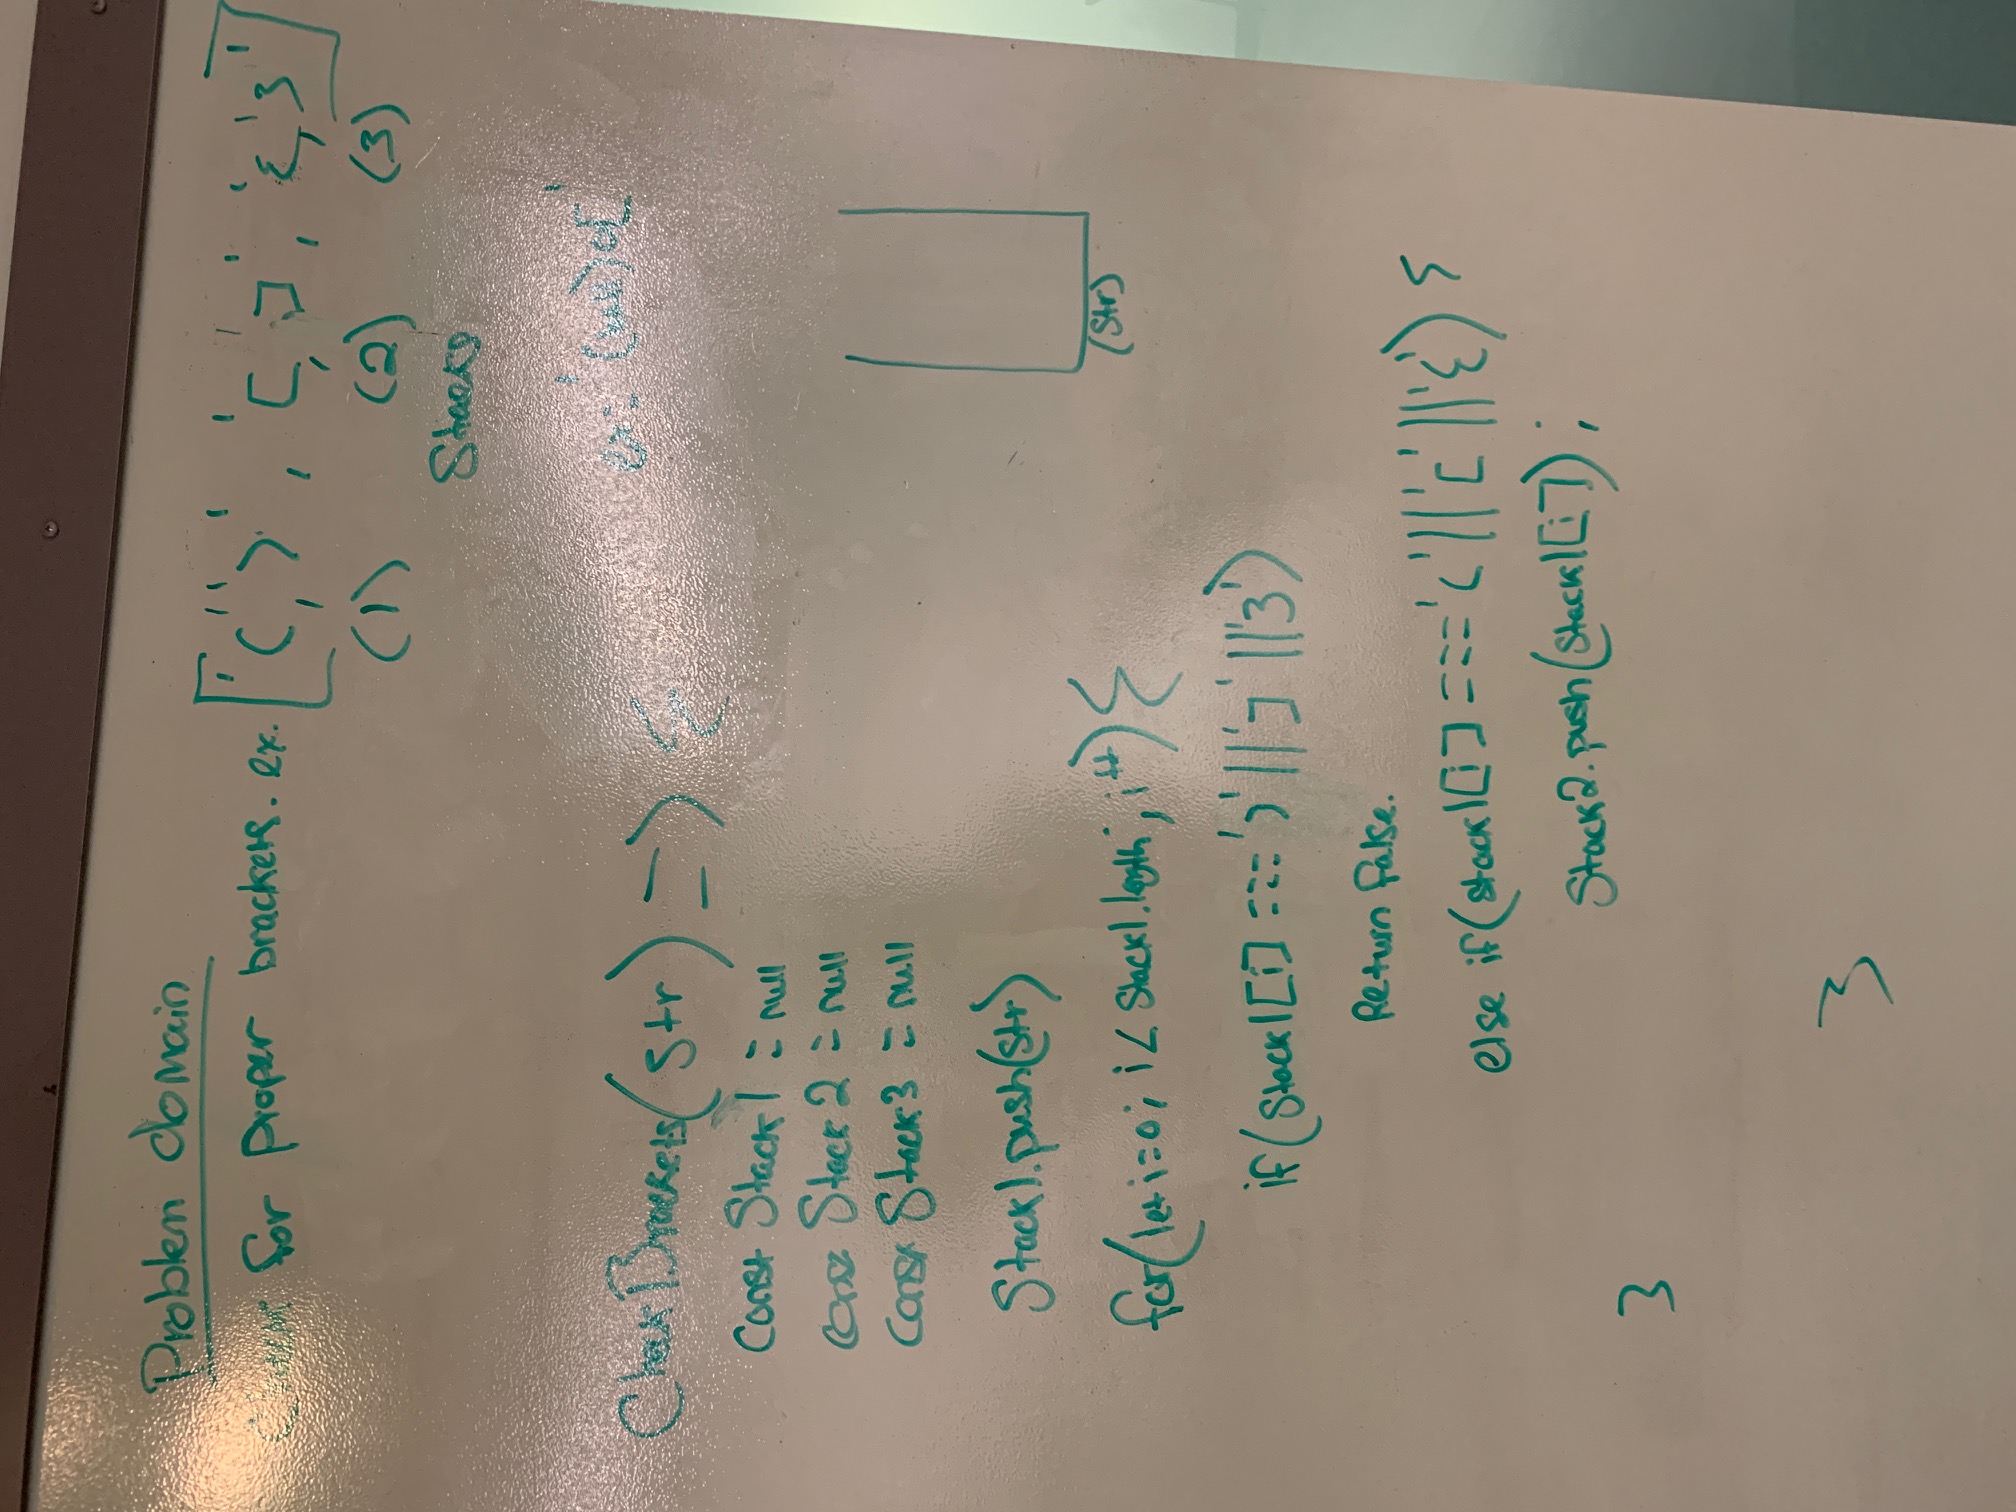 Problem domain
Check for proper brackets. ex. ['(',')', '[',']', '{','}']
(1) (2) (3)
Stacks
ex: '(null)o['
CheckBrackets(str) => {
const Stack1 = null
const Stack2 = null
const Stack3 = null
Stack1.push(str)
(str)
for(let i=0; i< Stack1.length; i++) {
if(Stack1[i] === ')' || ']' || '}')
Return false.
else if(stack1[i] === '(' || '[' || '{') {
Stack2.push(Stack1[i]);
}
}